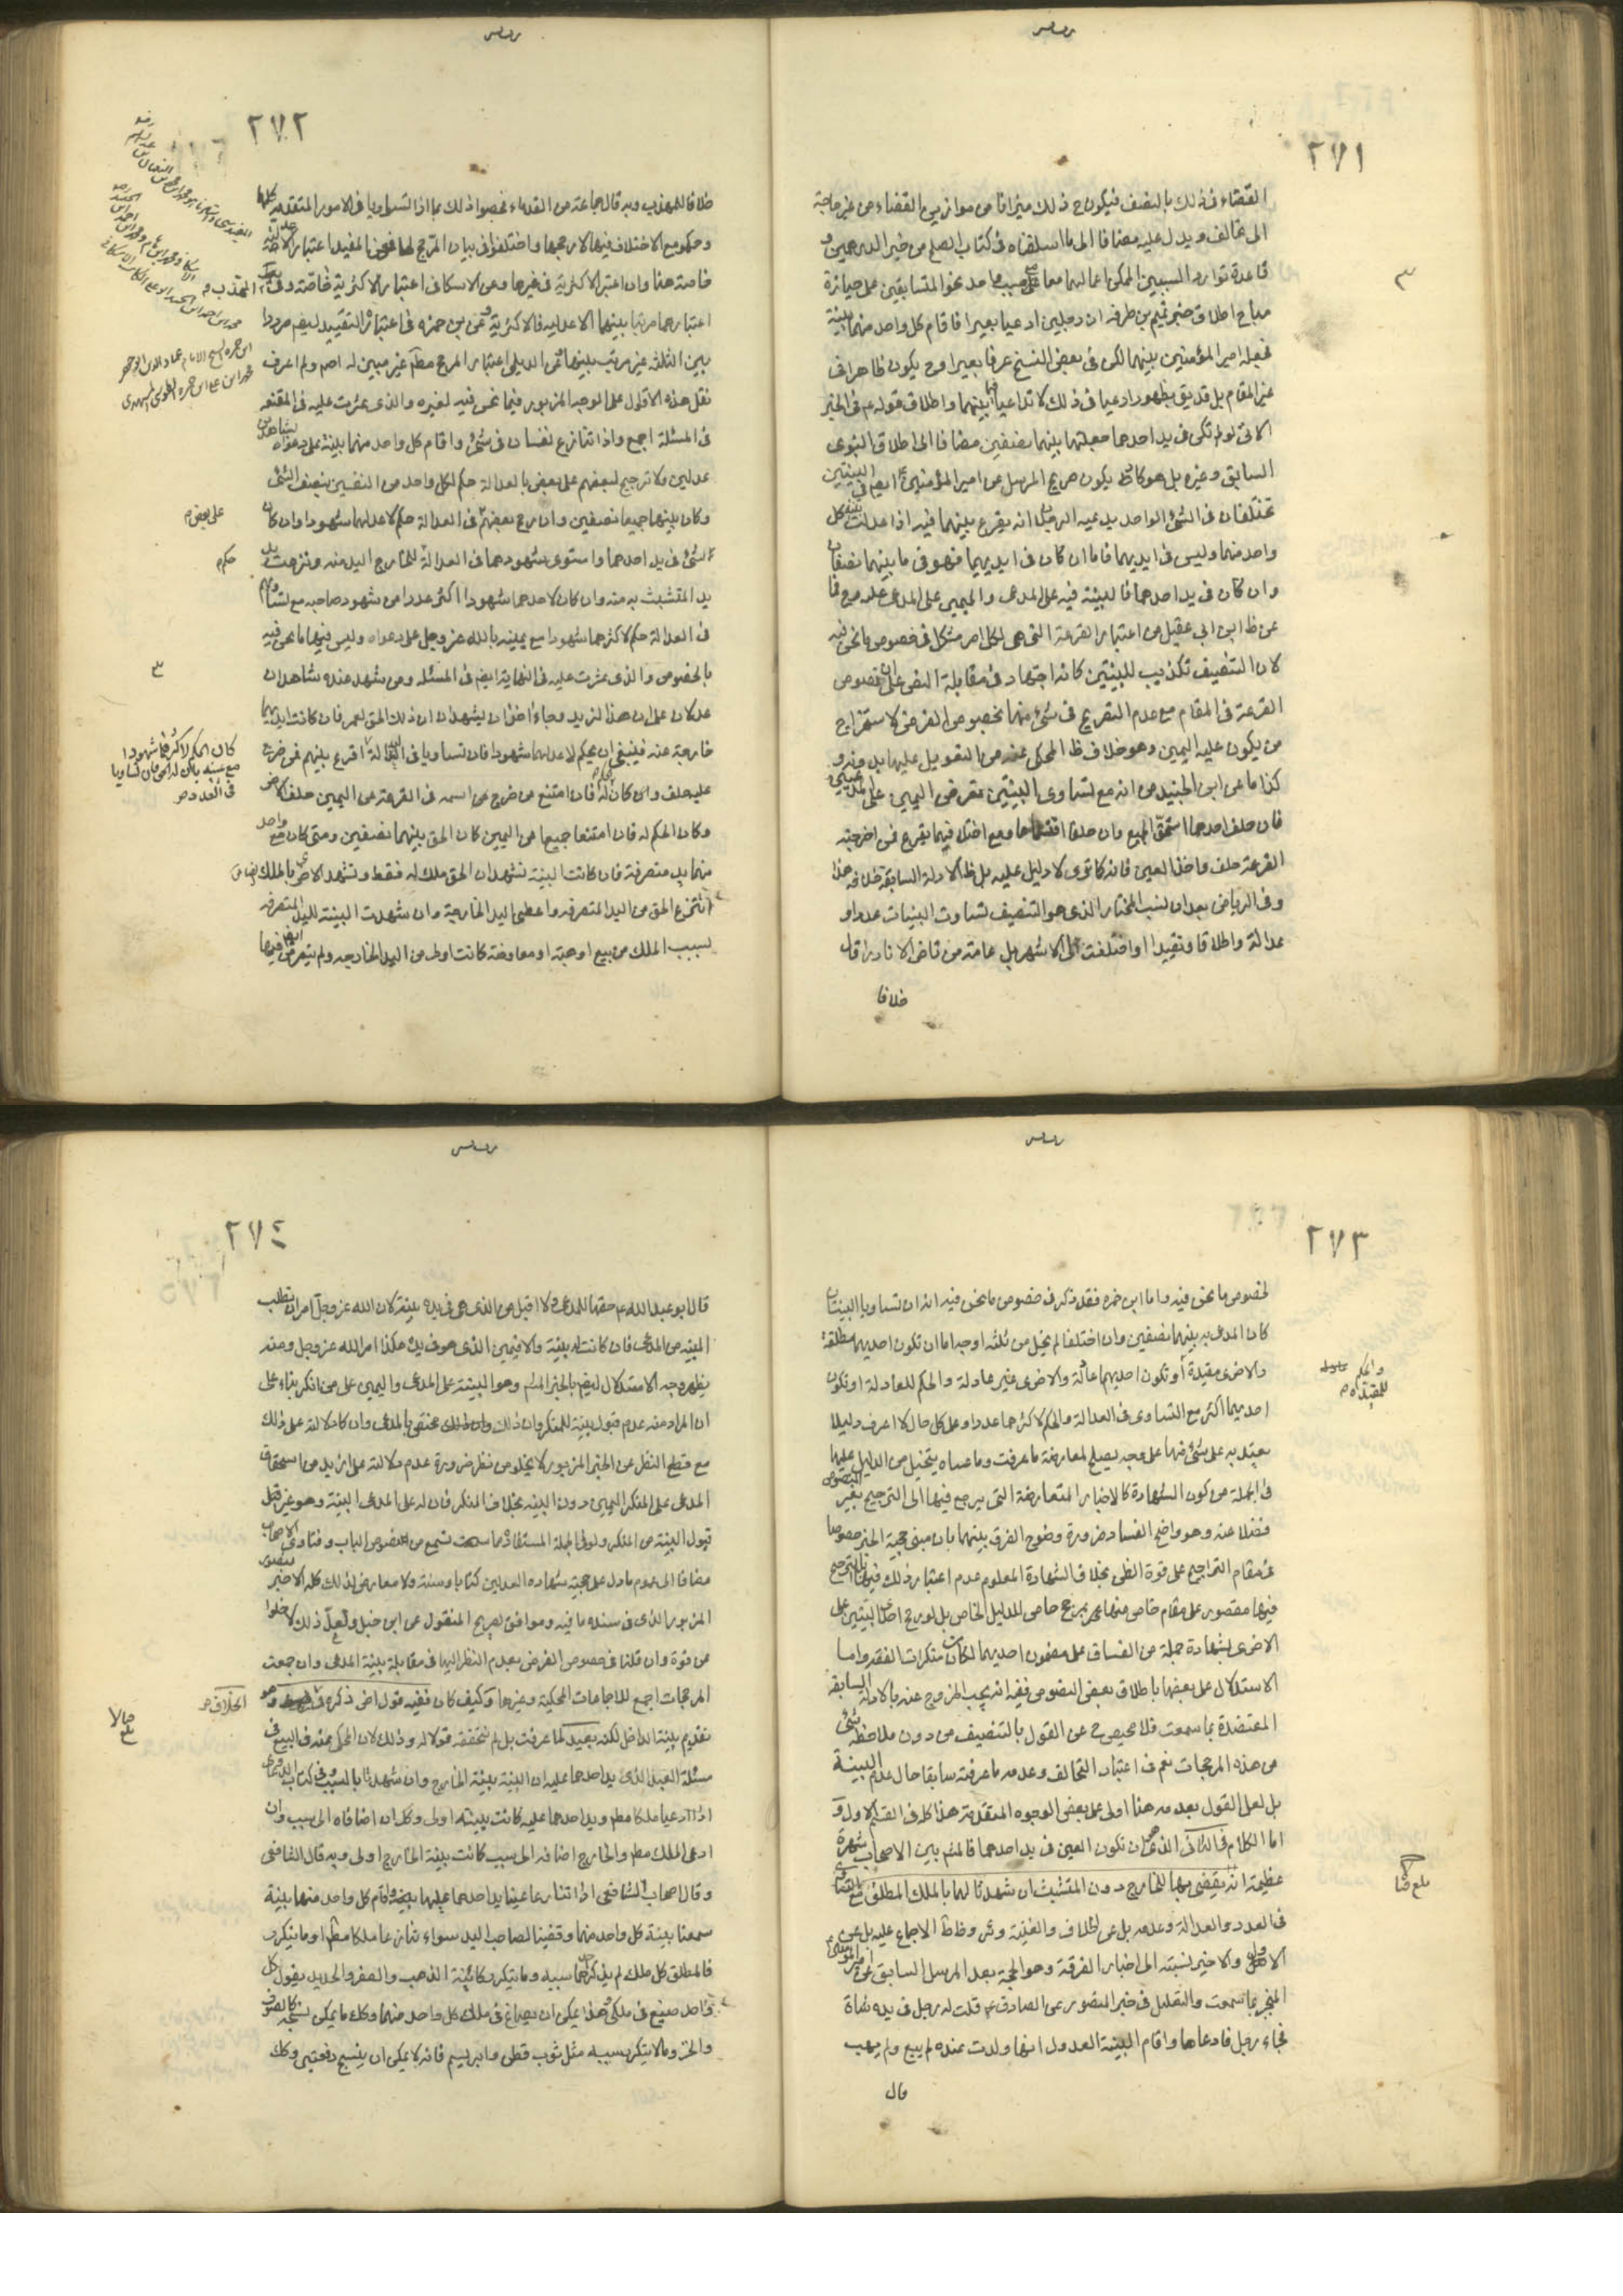 ٢٧١
القضاء في ذلك بالنصف فيكون ح ذلك ميزانا من موازين القضاء من غير حاجة
الى تحالف ويدل عليه مضافا الى ما اسلفناه في كتاب الصلح من خبر الدرهمين و
قاعدة توارد السببين الممكن اعمالهما معا على مسبب واحد نحو المتسابقين على حيازة
مباح اطلاق خبر تميم بن طرفه ان رجلين ادعيا بعيرا فاقام كل واحد منهما بينة
فجعله امير المؤمنين بينهما لكن في بعض النسخ عرفا بعيرا وح يكون ظاهرا في
غير المقام بل قد يق بظهور ادعيا في ذلك لا تداعيا فيما بينهما واطلاق قوله ع في الخبر
الاتى لو لم تكن في يد احدهما جعلتها بينهما نصفين مضافا الى اطلاق النبوي
السابق وغيره بل هو كاد يكون صريح المرسل عن امير المؤمنين ع ايضا في البينتين
تختلفان في الشئ الواحد يدعيه الرجلان انه يقرع بينهما فيه اذا عدلت بينة كل
واحد منهما وليس في ايديهما فاما ان كان في ايديهما فهو فيما بينهما نصفان
وان كان في يد احدهما فالبينة فيه على المدعي واليمين على المدعى عليه فما
عن ظ ابن ابي عقيل من اعتبار القرعة التي هي لكل امر مشكل في خصوص ما نحن فيه
لان التنصيف تكذيب للبينتين كانه اجتهاد في مقابلة النص على ان خصوص
القرعة في المقام مع عدم التقريع في شئ منها بخصوص الفرض لاستخراج
من يكون عليه اليمين وهو خلاف ظ المحكي عنه من التعويل عليها بدونه و
كذا ما عن ابن الجنيد من انه مع تساوى البينتين تعرض اليمين على المدعيين
فان حلف احدهما استحق الجميع وان حلفا اقتسماها ومع اختلافهما يقرع فمن اخرجته
القرعة حلف واخذ العين فانه كما ترى لا دليل عليه بل ظ الادلة السابقة خلافه هذا
وفي الرياض بعد ان نسب المختار الذي هو التنصيف تساوت البينات عددا و
عدالة واطلاقا وتقييدا او اختلفت الى الاشهر بل عامة من تاخر الا نادرا قال
خلافا
٢٧٢
خلافا للمهذب وبه قال جماعة من القدماء فخصوا ذلك بما اذا تساويا في الامور المتقدمة كلها
وحكموا مع الاختلاف فيها لارجحها واختلفوا في بيان المرجح لها فعن المفيد اعتبار الاعدلية
خاصة هنا وان اعتبر الاكثرية في غيرها وعن الاسكافي اعتبار الاكثرية خاصة وفي المهذب
اعتبارهما مرتبا بينهما الاعدلية فالاكثرية وعن ابن حمزه في اعتبار التقييد ايضا مرددا
بين الثلثة غير مرتب بينها وعن الديلمي اعتبار المرجح مطلقا غير مبين له اصلا ولم اعرف
نقل هذه الاقوال على الوجه المزبور فيما نحن فيه لغيره والذي عثرت عليه في المقنعه
في المسئلة اجمع واذا تنازع نفسان في شئ واقام كل واحد منهما بينة على دعواه بشاهدين
عدلين ولا ترجيح لبعضهم على بعض بالعدالة حكم لكل واحد من النفسين بنصف الشئ
وكان بينهما جميعا نصفين وان رجح بعضهم في العدالة حكم لاعدلهما شهودا وان كان
على بعض م
الشئ في يد احدهما واستوى شهودهما في العدالة للخارج اليد منه ونزعت يد
حكم م
يد المتشبث به منه وان كان لاحدهما شهودا اكثر عددا من شهود صاحبه مع تساويهم
في العدالة حكم لاكثرهما شهودا مع يمينه بالله عز وجل على دعواه وليس فيها ما نحن فيه
بالخصوص والذي عثرت عليه في النهاية ايضا في المسئلة ومن شهد عنده شاهدان
عدلان على ان هذا لزيد وجاء اخران يشهدان ان ذلك الحق لعمر فان كانت ايديهما
خارجة عنه فينبغي ان يحكم لاعدلهما شهودا فان تساويا في العدالة اقرع بينهم فمن خرج
كان الحكم لاكثرهما شهودا
مع يمينه بالله له الحق فان تساويا
في العدد ص
عليه حلف وكان الحكم له فان امتنع من خرج اسمه في القرعة من اليمين حلف الاخر
وكان الحكم له فان امتنعا جميعا عن اليمين كان الحق بينهما نصفين ومتى كان مع واحد
منهما يد متصرفة فان كانت البينة تشهد ان الحق ملك له فقط وتشهد للاخر بالملك ايضا
انتزع الحق من اليد المتصرفه واعطى اليد الخارجة وان شهدت البينة لليد المتصرفه
بسبب الملك من بيع او هبة او معاوضة كانت اولى من اليد الخارجه ولم يتعرض ايضا فيها
٢٧٣
لخصوص ما نحن فيه واما ابن حمزه فقد ذكر في خصوص ما نحن فيه انه ان تساويا البينتان
كان المدعى به بينهما نصفين وان اختلفا لم يخل من ثلثه اوجه اما ان تكون احديهما مطلقة
والاخرى مقيدة او تكون احديهما عادلة والاخرى غير عادلة والحكم للعادلة او تكون
والحكم
للمقيده ص
احديهما اكثر مع التساوى في العدالة والحكم لاكثرهما عددا وعلى كل حال لا اعرف دليلا
يعتد به على شئ منها على وجه يصلح لمعارضة ما عرفت وما عساه يتخيل من الدليل عليها
في الجملة من كون الشهادة كالاخبار المتعارضة التي يرجع فيها الى الترجيح بغير المنصوص
فضلا عنه وهو واضح الفساد ضرورة وضوح الفرق بينهما بان مبنى حجية الخبر خصوصا
في مقام التراجيح على قوة الظن بخلاف الشهادة المعلوم عدم اعتبار ذلك فيها فالترجيح
فيها مقصور على مقام خاص منها بمرجح خاص للدليل الخاص بل لو رجح احدى البينتين على
الاخرى بشهادة جملة من الفساق على مضمون احديهما لكان من منكرات الفقه واما
الاستدلال على بعضها باطلاق بعض النصوص ففيه انه يجب الخروج عنه بالادلة السابقة
المعتضدة بما سمعت فلا محيص ح عن القول بالتنصيف من دون ملاحظة شئ
من هذه المرجحات نعم في اعتبار التحالف وعدمه ما عرفته سابقا حال عدم البينة
بل لعل القول بعدمه هنا اولى على بعض الوجوه المتقدمة هذا كله في القسم الاول و
اما الكلام في الثاني الذي هو ان تكون العين في يد احدهما فالمشهور بين الاصحاب شهرة
عظيمة انه يقضى بها للخارج دون المتشبث ان شهدتا لهما بالملك المطلق مع التساوي
في العدد والعدالة وعدمه بل عن الخلاف والغنية وئر وظاهر الاجماع عليه بل عن
الاول والاخير نسبته الى اخبار الفرقة وهو الحجة بعد المرسل السابق عن امير المؤمنين
المنجبر بما سمعت والتعليل في خبر منصور عن الصادق ع قلت له رجل في يده شاة
فجاء رجل فادعاها واقام البينة العدول انها ولدت عنده لم يبع ولم يهب
قال
بلغ قبالا
٢٧٤
قال ابو عبد الله ع حقها للمدعي ولا اقبل من الذي هي في يده بينة لان الله عز وجل امر ان يطلب
البينة من المدعي فان كانت له بينة والا فيمين الذي هو في يده هكذا امر الله عز وجل ومنه
يظهر وجه الاستدلال ايضا بالخبر المرسل وهو البينة على المدعي واليمين على من انكر بناء على
ان المراد منه عدم قبول بينة المنكر وان ذلك مختص بالمدعي وان كان دلالته على ذلك
مع قطع النظر عن الخبر المزبور لا يخلو من نظر ضرورة عدم دلالته على ازيد من استحقاق
المدعي على المنكر اليمين دون البينة بخلاف المنكر فان له على المدعي البينة وهو غير قبل
قبول البينة من المنكر ولو في الجملة المستفاد مما ستسمع من نصوص الباب وفتاوى الاصحاب
مضافا الى عموم ما دل على حجية شهادة العدلين كتابا وسنة ولا معارض لذلك كله الا خبر منصور
المزبور الذي في سنده ما فيه وموافق لصريح المنقول عن ابن حنبل ولعل ذلك لا يخلوا
من قوة وان قلنا في خصوص الفرض بعدم النظر اليها في مقابلة بينة المدعي وان جمعت
المرجحات اجمع للاجماعات المحكية وغيرها وكيف كان ففيه قول اخر ذكره في الخلاف وهو
تقديم بينة الداخل لكنه بعيد لما عرفت بل لم نتحققه قولا له وذلك لان المحكي عنه في البيع في
مسئلة العبد الذي يد احدهما عليه ان البينة بينة الخارج وان شهدتا بالسبب وفي كتاب الدعاوى
اذا ادعيا ملكا مطلقا ويد احدهما عليه كانت بينته اولى وكل ان اضافاه الى سبب وان
ادعى الملك مطلقا والخارج اضافه الى سبب كانت بينة الخارج اولى وبه قال الشافعي
وقال اصحاب الشافعي اذا تنازعا عينا يد احدهما عليها واقام كل واحد منهما بينة
سمعنا بينة كل واحد منهما وقضينا لصاحب اليد سواء تنازعا ملكا مطلقا او ما يتكرر
فالمطلق كل ملك لم يذكر احدهما سببه وما يتكرر كانية الذهب والصفر والحديد يقول كل
واحد صيغ في ملكي وهذا يمكن ان يصاغ في ملك كل واحد منهما وكذلك ما يمكن نسجه كالصوف
والخز وما لا يتكرر سببه مثل ثوب قطن وابريسم فانه لا يمكن ان ينسج دفعتين وكك